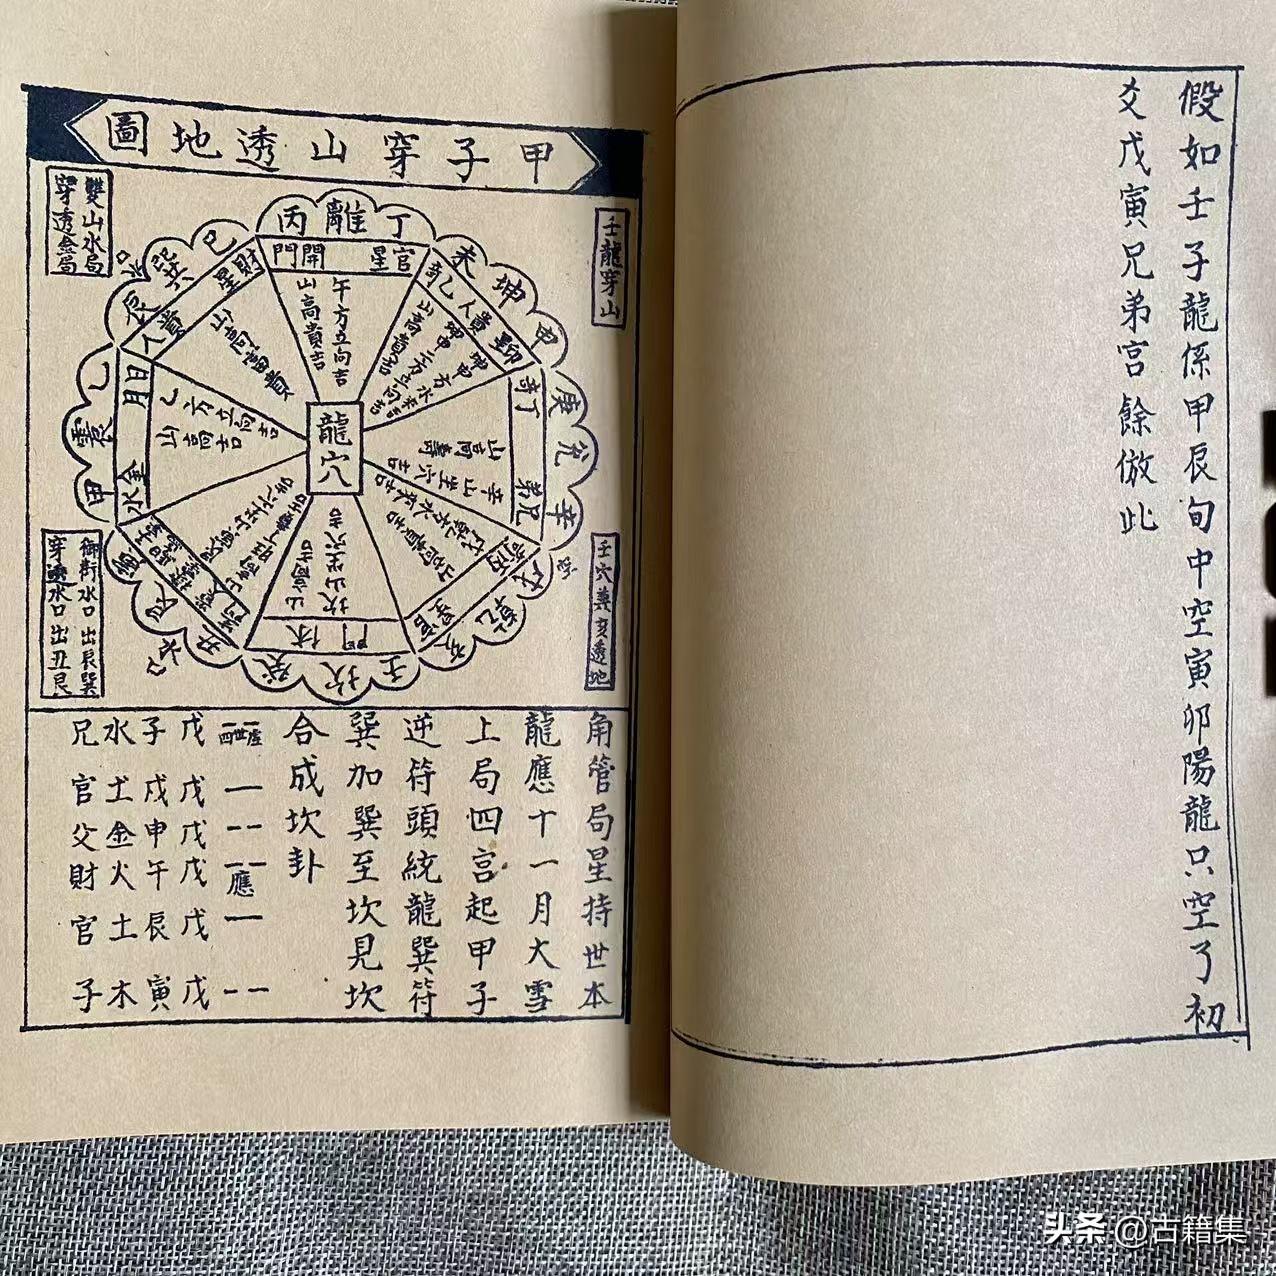 假如壬子龍係甲辰旬中空寅卯陽龍只空了初
爻戊寅兄弟宮餘倣此
甲子穿山透地圖
壬龍穿山
雙山水局
穿透金局
壬穴兼亥透地
御街水口出艮巽
穿透水口出丑艮
丙 離 丁
未 坤 申
庚 兌 辛
戌 乾 亥
壬 坎 癸
丑
甲 震 乙
辰 巽 巳
開門
官星
午方立向吉
山高貴吉
貴人
山高貴吉
丁奇
兄弟
山高壽
辛山坐穴吉
休門
坎山坐穴吉
山高吉
乙方立向吉
山高吉
貴人
財星
山高富貴
龍穴
角管局星持世本
龍應十一月大雪
上局四宮起甲子
逆符頭統龍巽符
巽加巽至坎見坎
合成坎卦
應
戊戊戊戊戊戊
子戌申午辰寅
水土金火土木
兄官父財官子
头条 @古籍集